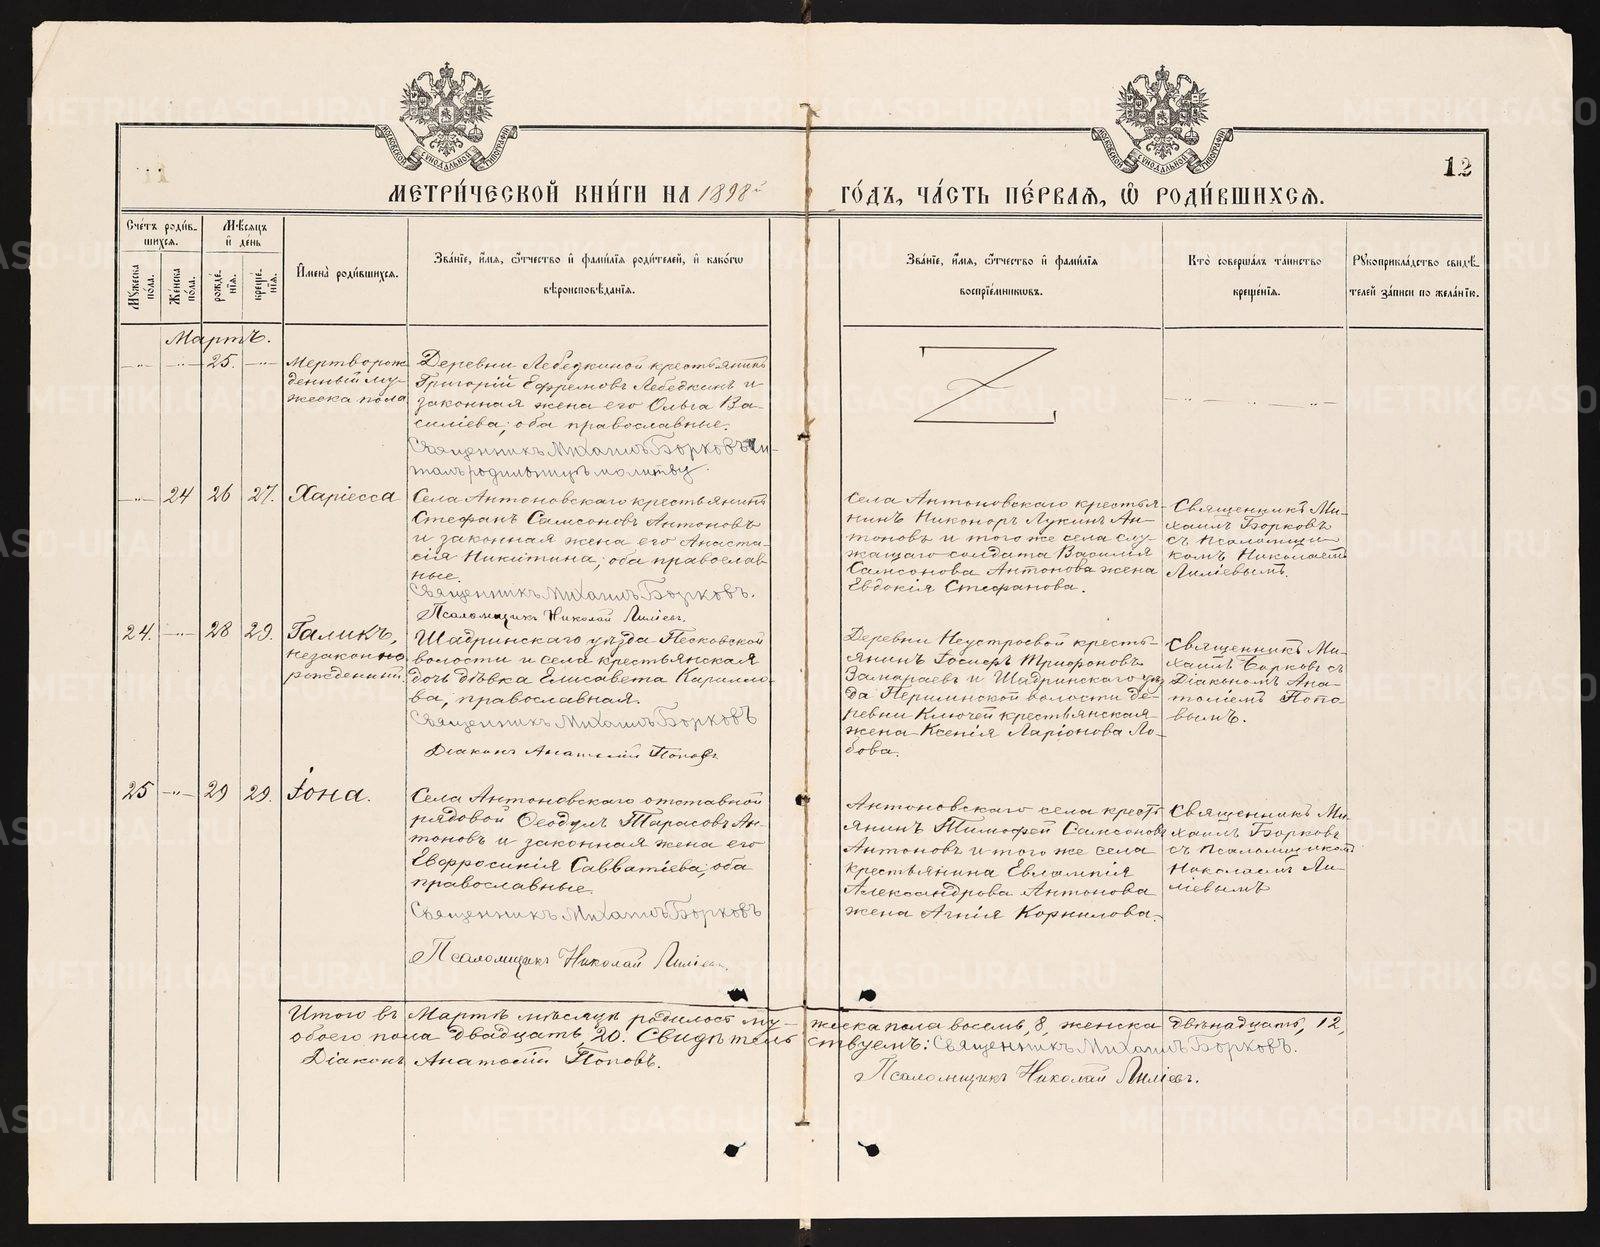 МОСКОВСКОЙ СѴНОДАЛЬНОЙ ТИПОГРАФІИ
МОСКОВСКОЙ СѴНОДАЛЬНОЙ ТИПОГРАФІИ
12
МЕТРИ́ЧЕСКОЙ КНИ́ГИ НА 1898й ГО́ДЪ, ЧА́СТЬ ПЕ́РВАѦ, Ѡ҆ РОДИ́ВШИХСѦ.
Сче́тъ роди́в-
шихся.
Мѣ́сяцъ
и҆ де́нь
Му́жеска
по́ла.
Же́нска
по́ла.
рожде́-
нїя.
креще́-
нїя.
И҆мена̀ роди́вшихся.
Зва́нїе, и҆́мя, ѻ҆́тчество и҆ фами́лїя роди́телей, и҆ како́гѡ
вѣроисповѣ́данїя.
Зва́нїе, и҆́мя, ѻ҆́тчество и҆ фами́лїя
воспрїе́мникѡвъ.
Кто̀ соверша́лъ та́инство
креще́нїя.
Рꙋкоприкла́дство свидѣ́-
телей за́писи по жела́нїю.
Мартъ.
—"— —"— 25. —"—
Мертворож
денный му-
жеска пола
Деревни Лебедкиной крестьянинъ
Григорій Ефремовъ Лебедкинъ и
законная жена его Ольга Ва-
силіева; оба православные.
Священникъ Михаилъ Борковъ чи-
талъ родильницѣ молитву.
—"— 24 26 27. Харіесса
Села Антоновскаго крестьянинъ
Стефанъ Самсоновъ Антоновъ
и законная жена его Анаста-
сія Никитина; оба православ
ные.
Священникъ Михаилъ Борковъ.
Псаломщикъ Николай Лиліевъ.
Села Антоновскаго крестья-
нинъ Никоноръ Лукинъ Ан-
тоновъ и того же села слу-
жащаго солдата Василія
Самсонова Антонова жена
Евдокія Стефанова.
Священникъ Ми-
хаилъ Борковъ
съ псаломщи-
комъ Николаемъ
Лиліевымъ.
24. —"— 28 29. Галикъ,
незаконно
рожденный.
Шадринскаго уѣзда Песковской
волости и села крестьянская
дочь дѣвка Елисавета Карилло-
ва, православная.
Священникъ Михаилъ Борковъ
Діаконъ Анатолій Поповъ
Деревни Неустроевой кресть-
янинъ Іосифъ Трифоновъ
Замараевъ и Шадринскаго уѣз
да Першинской волости де-
ревни Ключей крестьянская
жена Ксенія Ларіонова Ло-
бова.
Священникъ Ми-
хаилъ Борковъ съ
Діакономъ Ана-
толіемъ Попо-
вымъ.
25 —"— 29 29. Іона.
Села Антоновскаго отставной
рядовой Ѳеодулъ Тарасовъ Ан-
тоновъ и законная жена его
Евфросинія Савватіева; оба
православные.
Священникъ Михаилъ Борковъ
Псаломщикъ Николай Лиліевъ.
Антоновскаго села кресть
янинъ Тимофей Самсоновъ
Антоновъ и того же села
крестьянина Евлампія
Александрова Антонова
жена Агнія Корнилова.
Священникъ Ми-
хаилъ Борковъ
съ псаломщикомъ
Николаемъ Ли-
ліевымъ
Итого въ Мартѣ мѣсяцѣ родилось му- жеска пола восемь, 8, женска двѣнадцать, 12,
обоего пола двадцать, 20. Свидѣтель ствуемъ: Священникъ Михаилъ Борковъ.
Діаконъ Анатолій Поповъ.
Псаломщикъ Николай Лиліевъ.